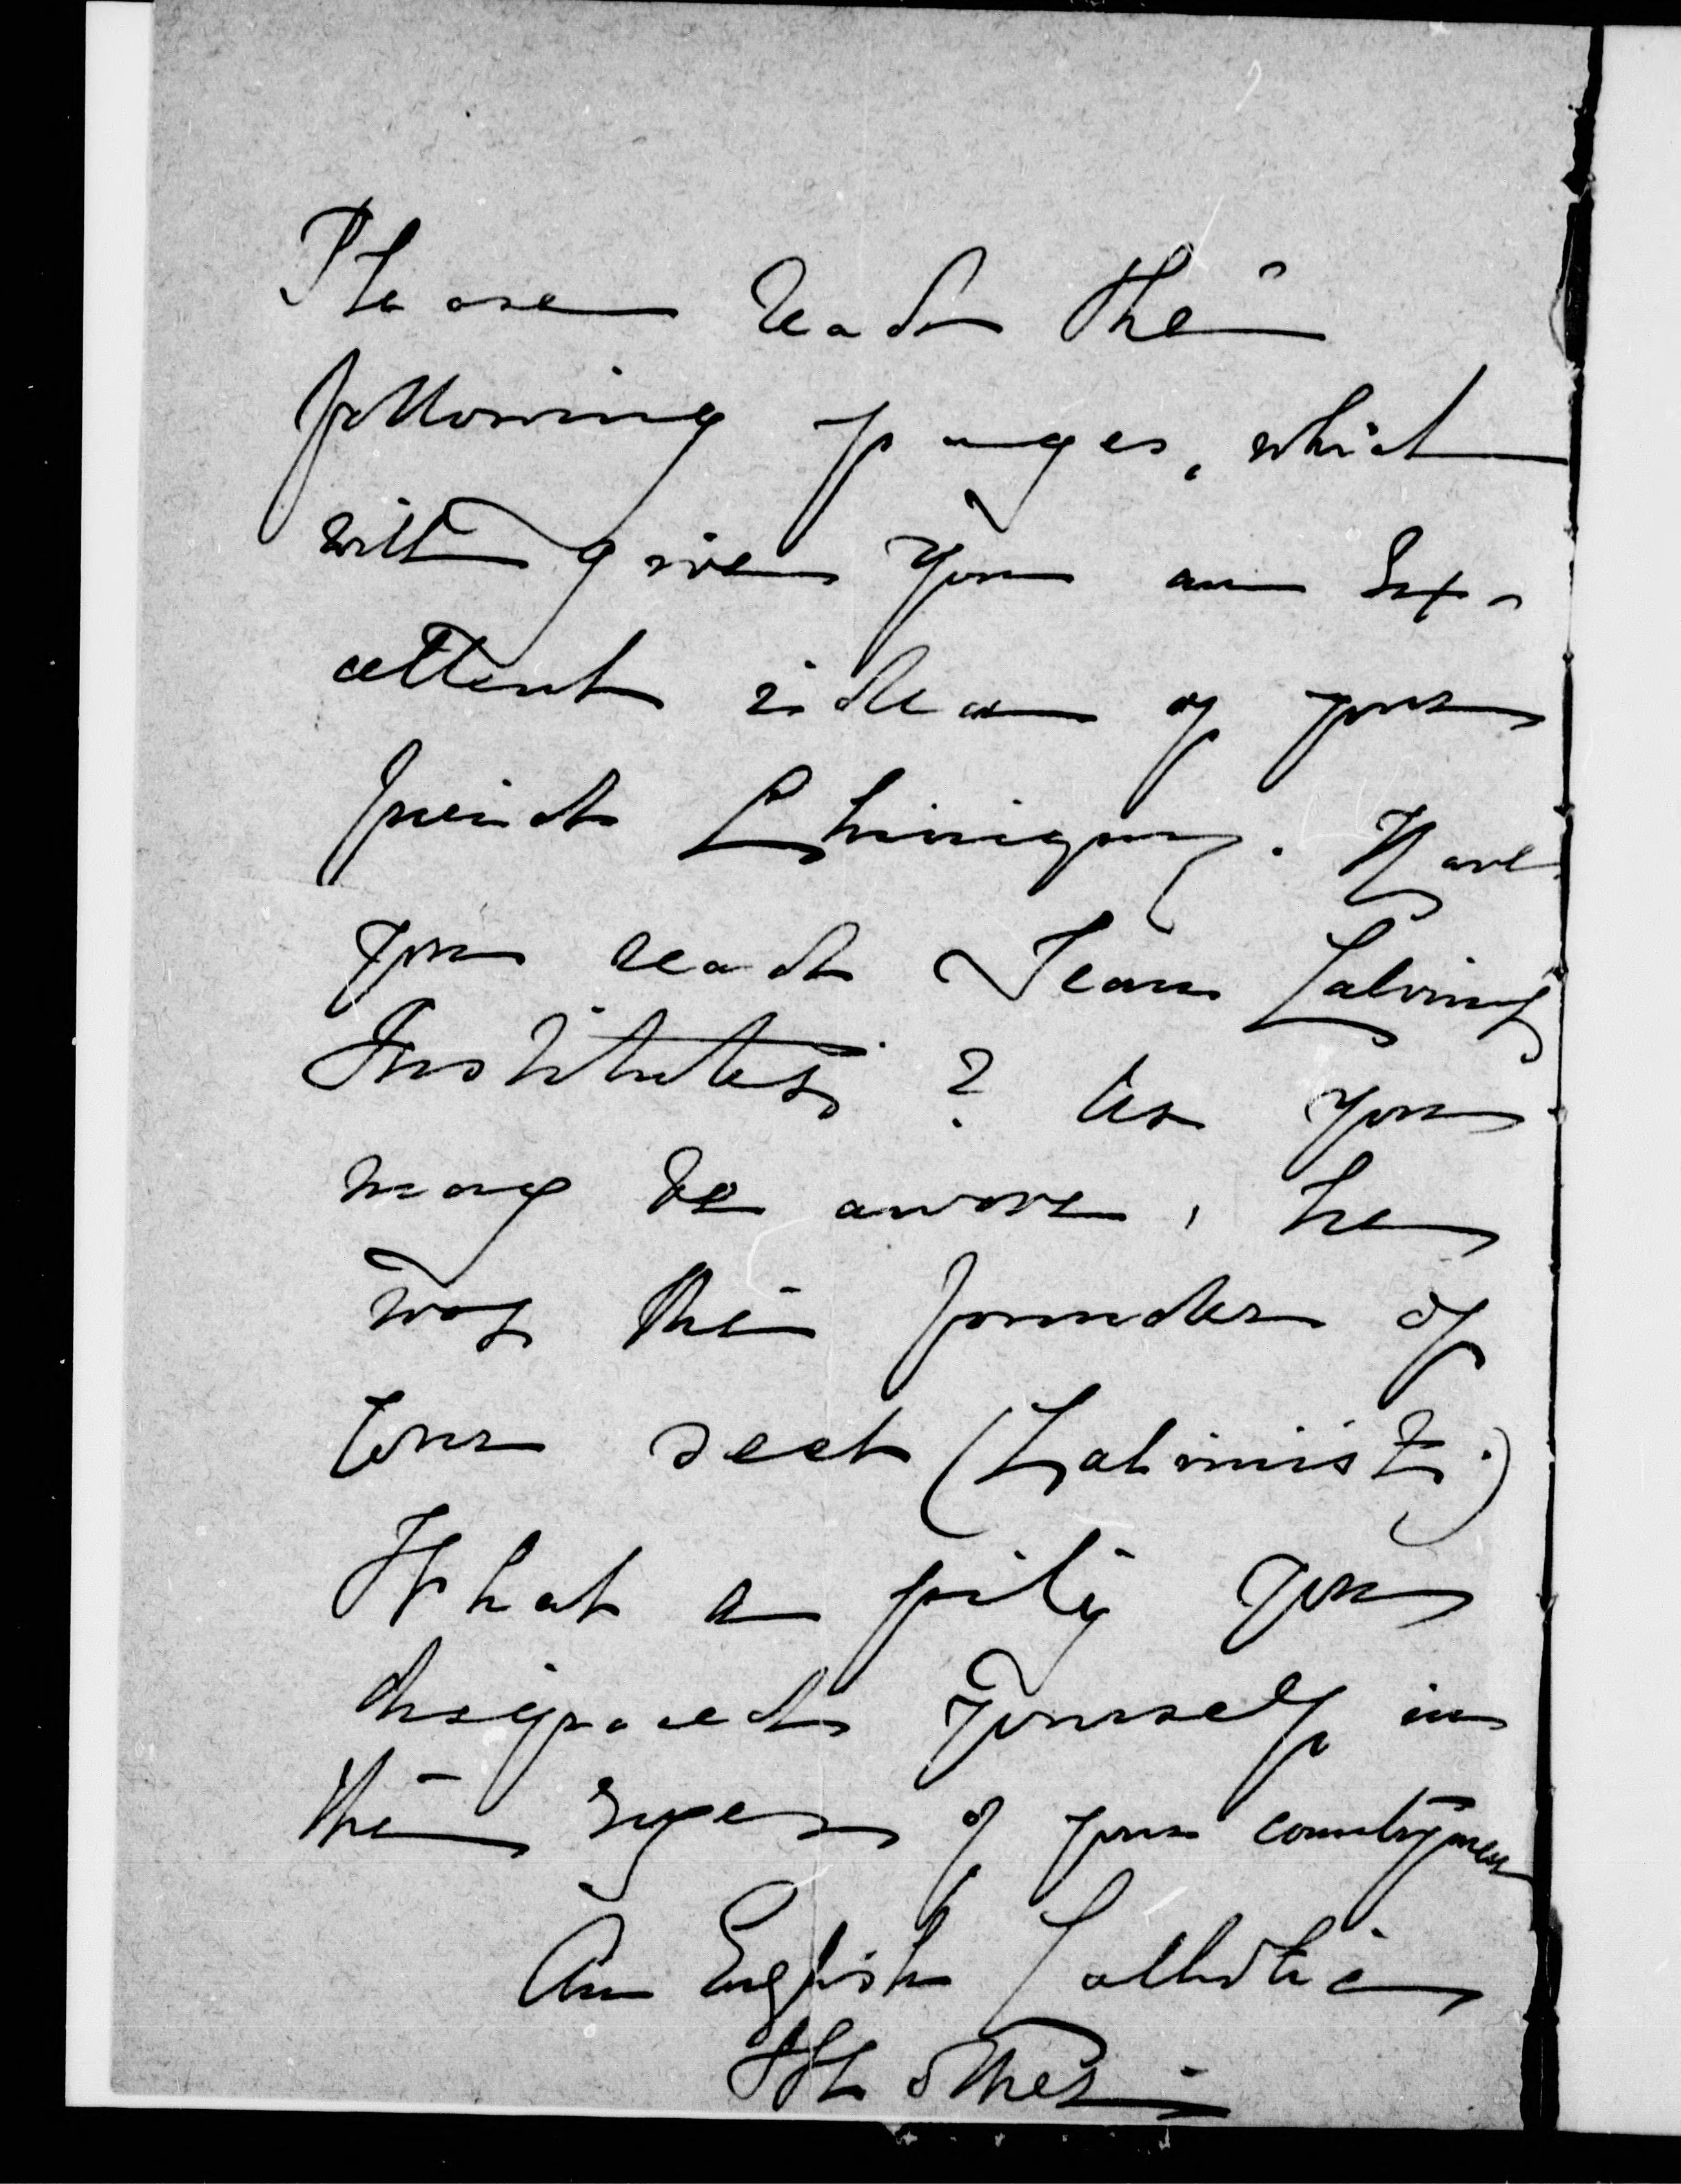 Please read the
following pages, which
will give you an Ex-
cellent idea of your
friend Chiniquy. Have
you read Jean Calvin's
Institutes? As you
may be aware, he
was the founder of
your sect (Calvinist.)
What a pity you
disgraced yourself in
the eyes of your countrymen
An English Catholic
Mother